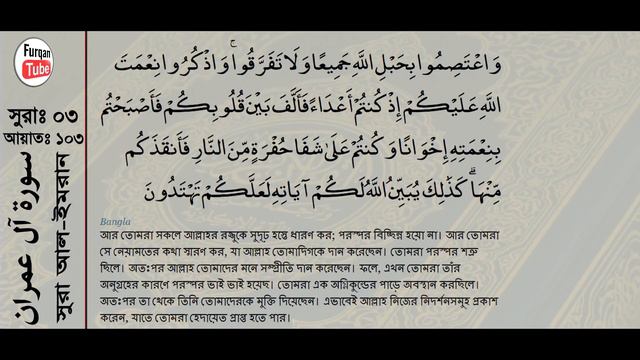 Furqan
Tube
সুরাঃ ০৩
আয়াতঃ ১০৩
سورة آل عمران
সুরা আল-ইমরান
وَاعْتَصِمُوا بِحَبْلِ اللَّهِ جَمِيعًا وَلَا تَفَرَّقُوا ۚ وَاذْكُرُوا نِعْمَتَ
اللَّهِ عَلَيْكُمْ إِذْ كُنتُمْ أَعْدَاءً فَأَلَّفَ بَيْنَ قُلُوبِكُمْ فَأَصْبَحْتُم
بِنِعْمَتِهِ إِخْوَانًا وَكُنتُمْ عَلَىٰ شَفَا حُفْرَةٍ مِّنَ النَّارِ فَأَنقَذَكُم
مِّنْهَا ۗ كَذَٰلِكَ يُبَيِّنُ اللَّهُ لَكُمْ آيَاتِهِ لَعَلَّكُمْ تَهْتَدُونَ
Bangla
আর তোমরা সকলে আল্লাহর রজ্জুকে সুদৃঢ় হস্তে ধারণ কর; পরস্পর বিচ্ছিন্ন হয়ো না। আর তোমরা
সে নেয়ামতের কথা স্মরণ কর, যা আল্লাহ তোমাদিগকে দান করেছেন। তোমরা পরস্পর শত্রু
ছিলে। অতঃপর আল্লাহ তোমাদের মনে সম্প্রীতি দান করেছেন। ফলে, এখন তোমরা তাঁর
অনুগ্রহের কারণে পরস্পর ভাই ভাই হয়েছ। তোমরা এক অগ্নিকুন্ডের পাড়ে অবস্থান করছিলে।
অতঃপর তা থেকে তিনি তোমাদেরকে মুক্তি দিয়েছেন। এভাবেই আল্লাহ নিজের নিদর্শনসমুহ প্রকাশ
করেন, যাতে তোমরা হেদায়েত প্রাপ্ত হতে পার।